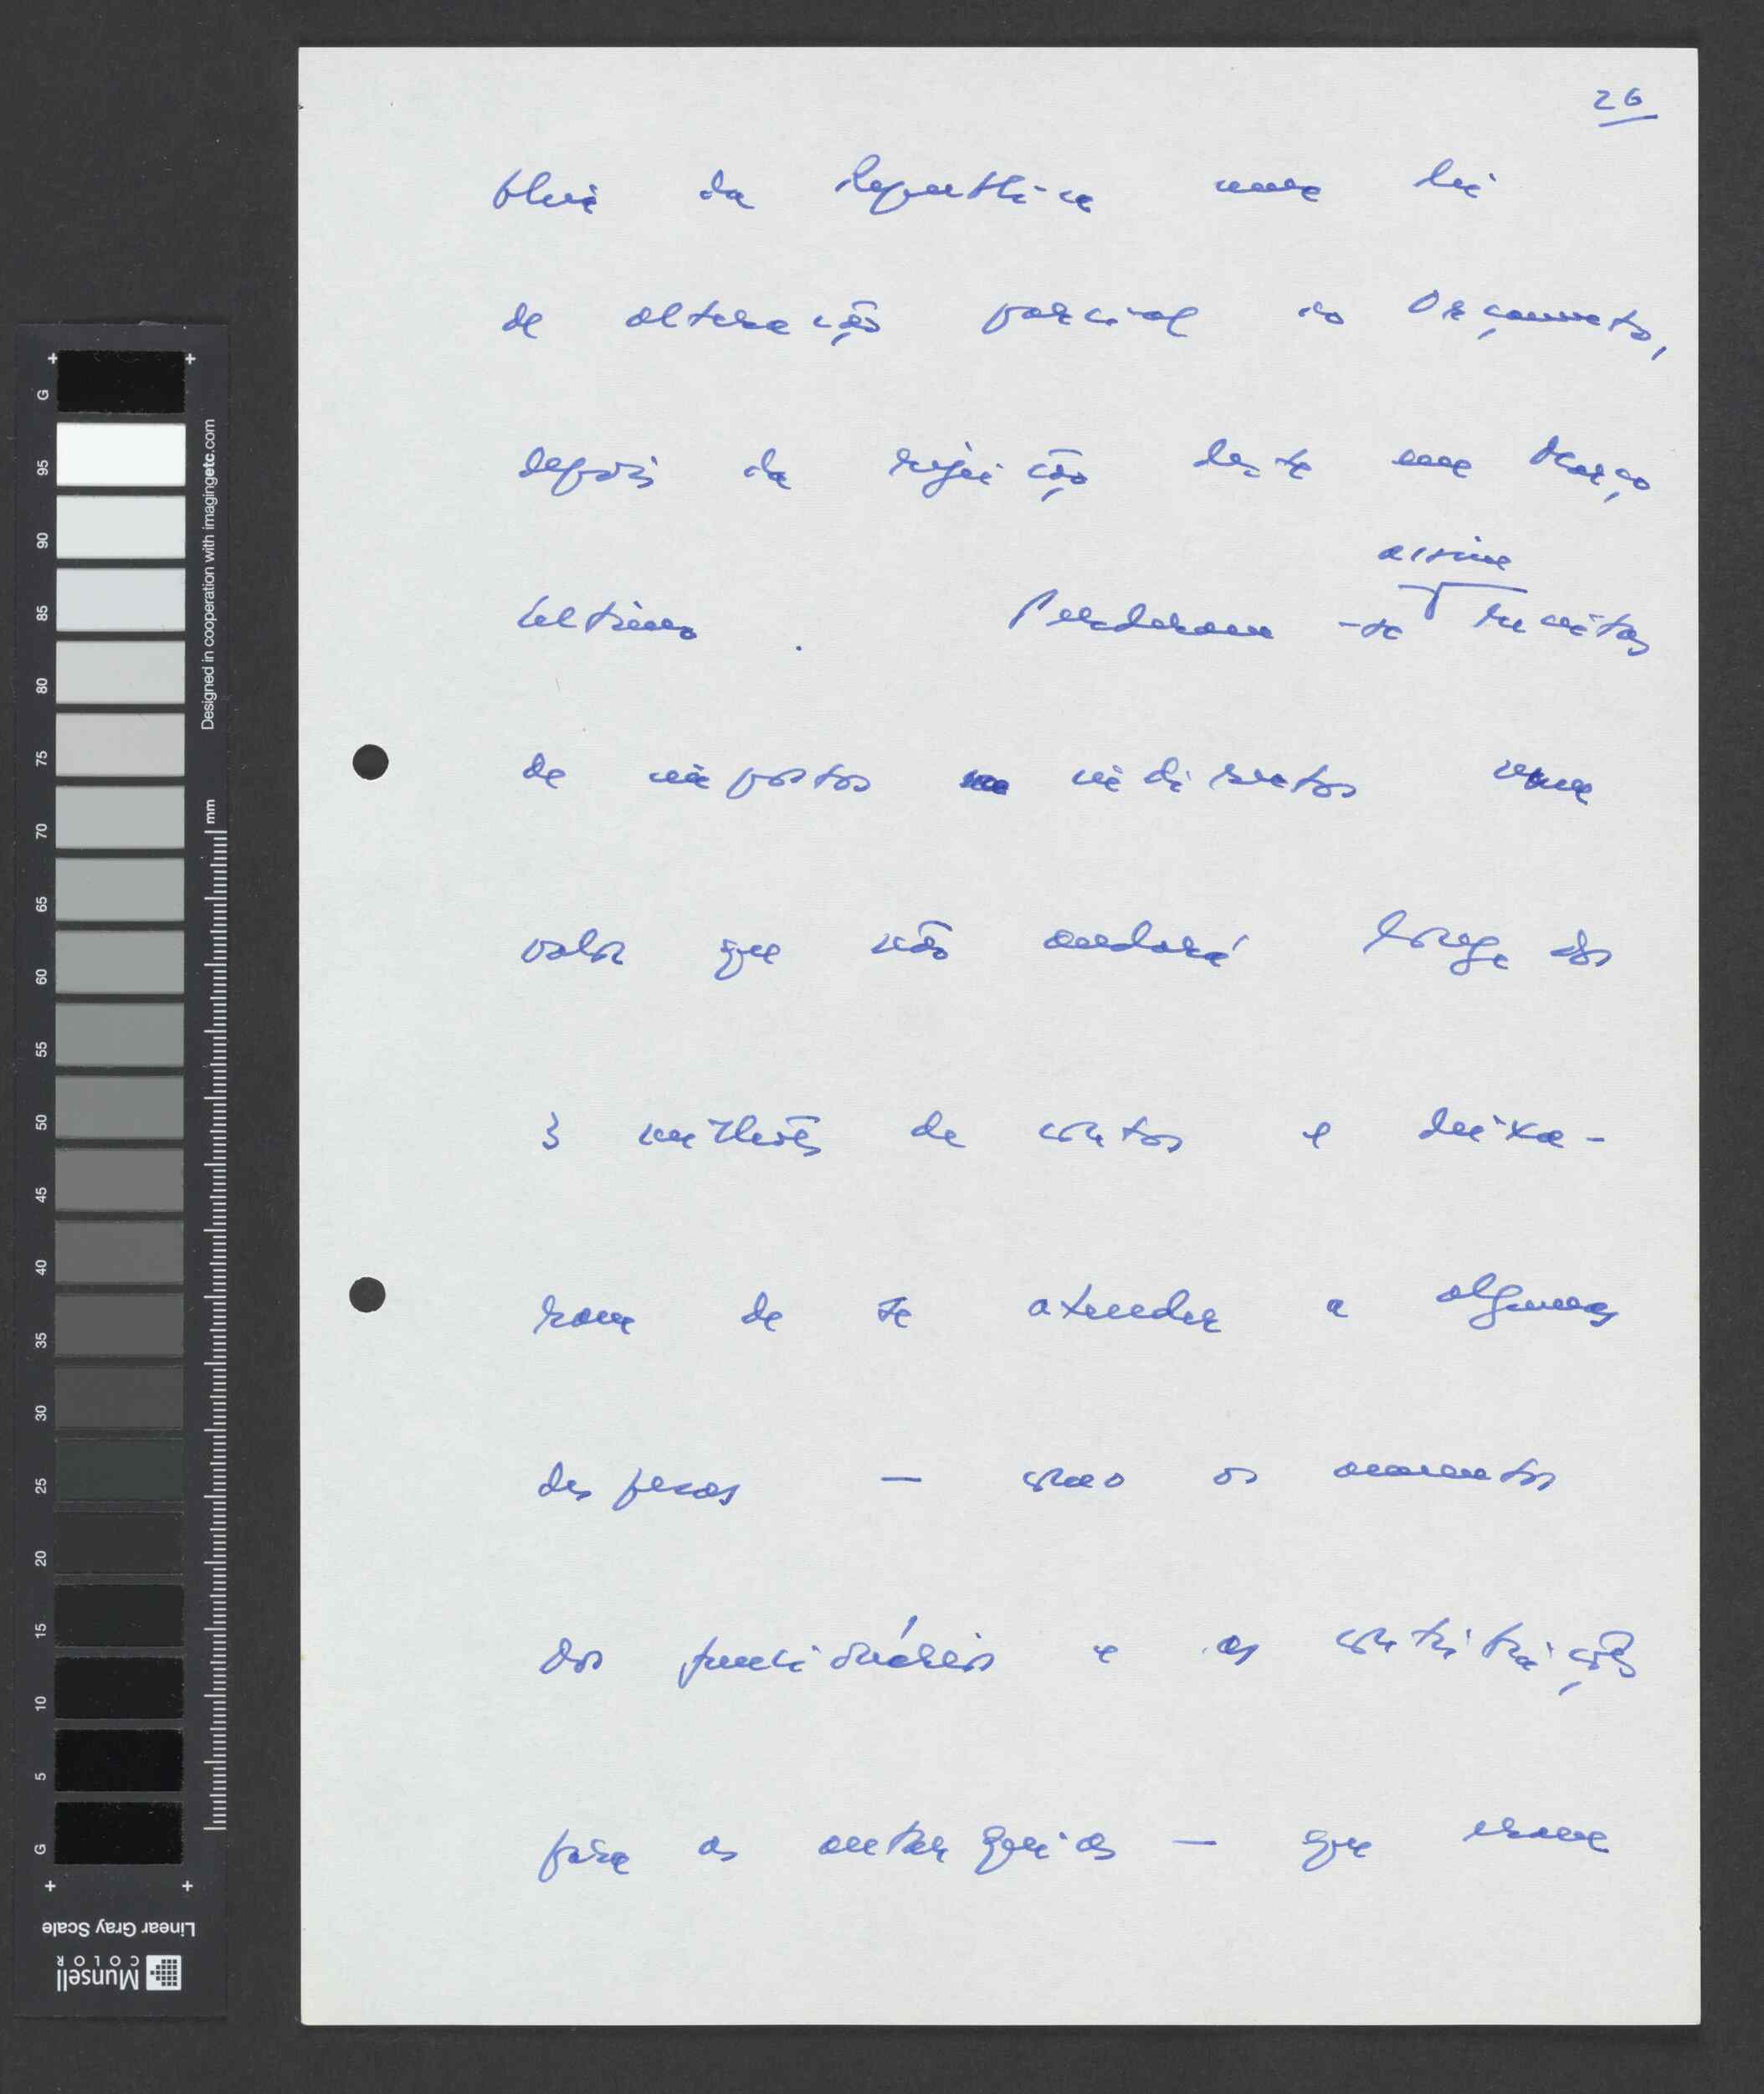 26
bleia da República uma lei
de alteração parcial do Orçamento,
depois da rejeição deste em Março
último. Perderam-se assim receitas
de impostos indirectos num
valor que não andará longe dos
3 milhões de contos e deixa-
ram de se atender a algumas
despesas — como os aumentos
dos funcionários e as contribuições
para as autarquias — que eram
G
95
90
85
80
75
70
65
60
55
50
45
40
35
30
25
20
15
10
5
G
Designed in cooperation with imagingetc.com
mm
Linear Gray Scale
Munsell
COLOR